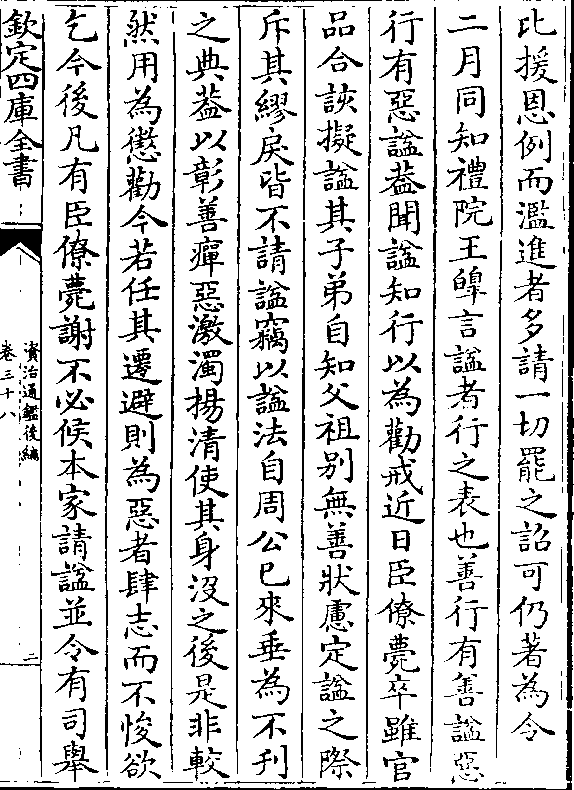 比援恩例而濫進者多請一切罷之詔可仍著為令
二月同知禮院王皥言謚者行之表也善行有善謚惡
行有惡謚葢聞謚知行以為勸戒近日臣僚薨卒雖官
品合該擬謚其子弟自知父祖别無善狀慮定謚之際
斥其繆戾皆不請謚竊以謚法自周公已來垂為不刋
之典葢以彰善癉惡激濁揚清使其身没之後是非較
然用為懲勸今若任其遷避則為惡者肆志而不悛欲
乞今後凡有臣僚薨謝不必候本家請謚並令有司舉
欽定四庫全書
資治通鑑後編
卷三十八
二